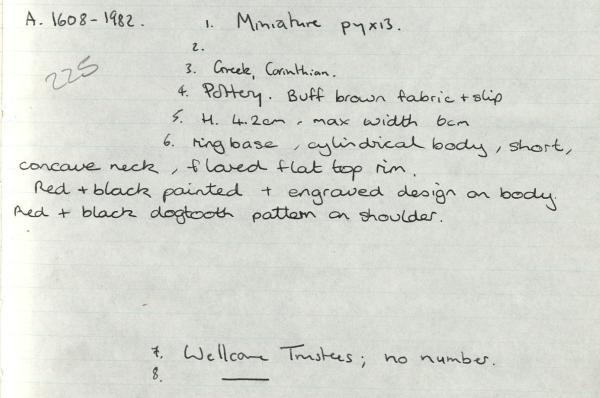 A. 1608-1982. 1. Miniature pyxis.
2.
225
3. Greek, Corinthian.
4. Pottery. Buff brown fabric + slip
5. H. 4.2cm, max width 6cm
6. ring base, cylindrical body, short,
concave neck, flared flat top rim.
Red + black painted + engraved design on body.
Red + black dogtooth pattern on shoulder.
7. Wellcome Trustees; no number.
8. —